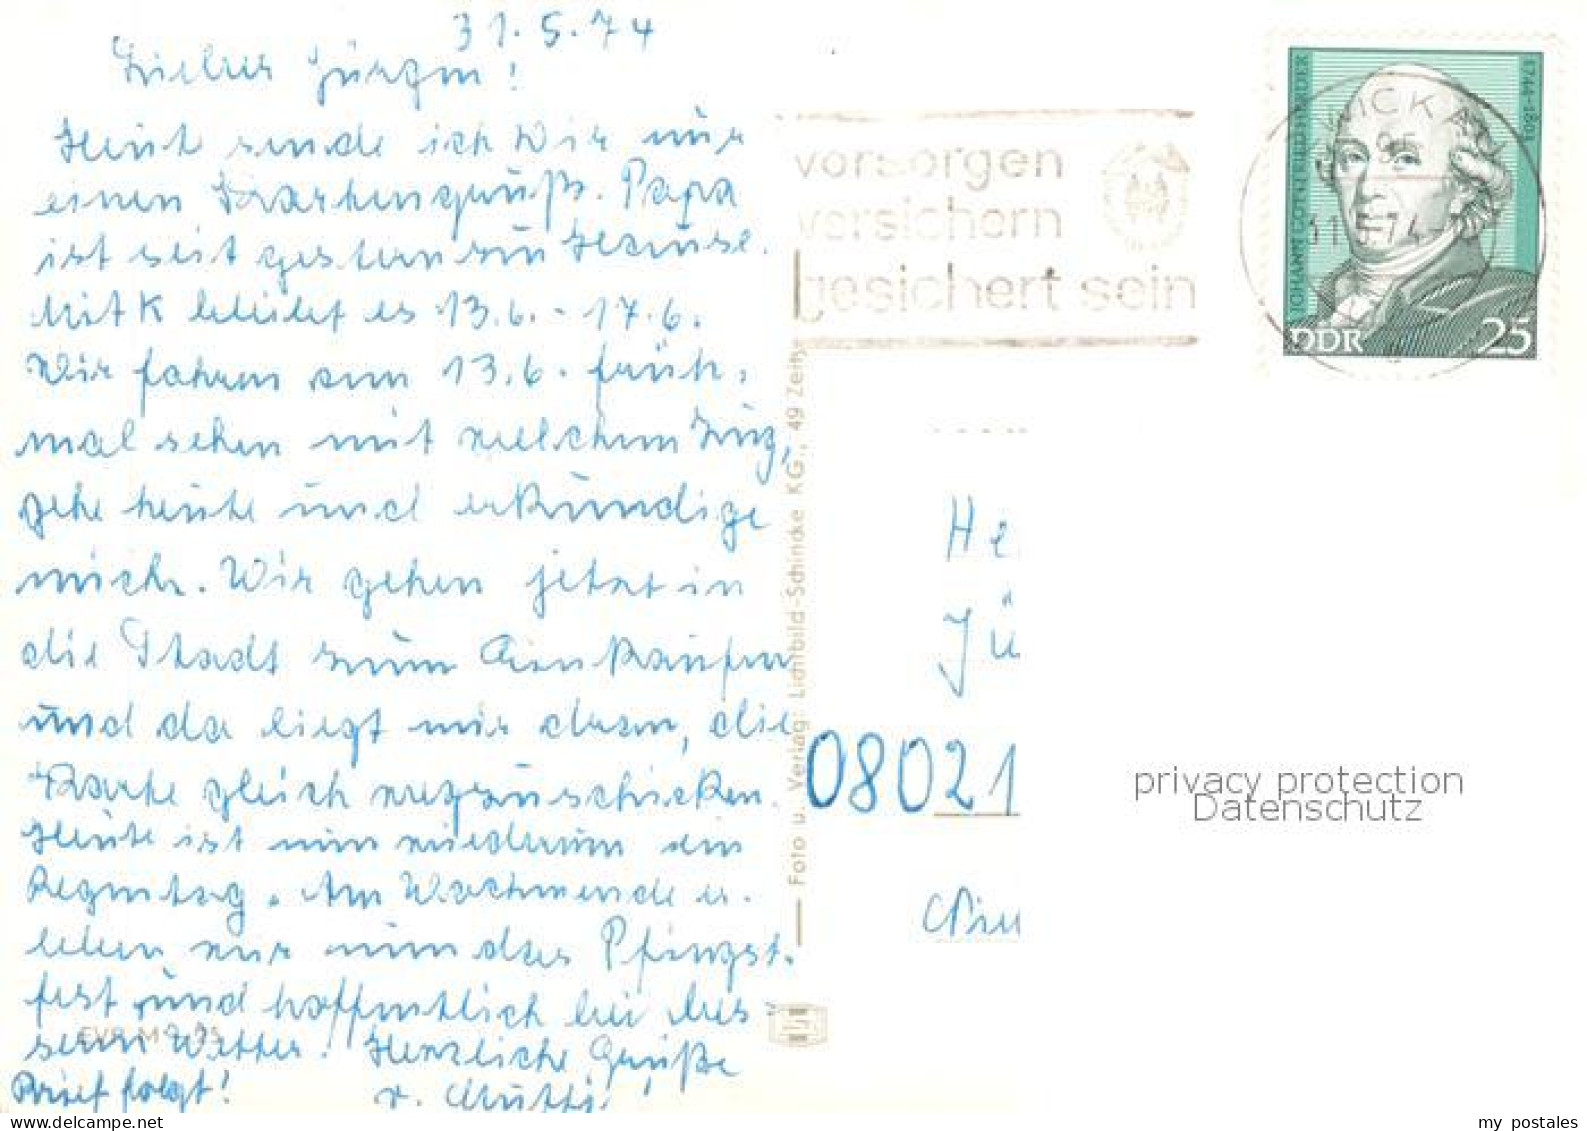 31.5.74
Lieber Jürgen!
Heute sende ich Dir nur
einen Kartengruß. Papa
ist seit gestern zu Hause.
Mit K bleibt es 13.6. - 17.6.
Wir fahren am 13.6. früh,
mal sehen mit welchem Zug,
gehe heute und erkundige
mich. Wir gehen jetzt in
die Stadt zum Einkaufen
und da liegt mir dran, die
Karte gleich wegzuschicken.
Heute ist nun wiederum ein
Regentag. Am Wochenende er-
leben wir nun das Pfingst-
fest und hoffentlich bei bes-
serem Wetter. Herzliche Grüße
Brief folgt! v. Mutti
EVP M
Foto u. Verlag: Lichtbild-Schincke KG., 49 Zeitz
vorsorgen
versichern
gesichert sein
JOHANN GOTTFRIED HERDER
1744-1803
DDR 25
ZWICKAU
95
31.5.74
He
Jü
08021
privacy protection
Datenschutz
www.delcampe.net
my_postales